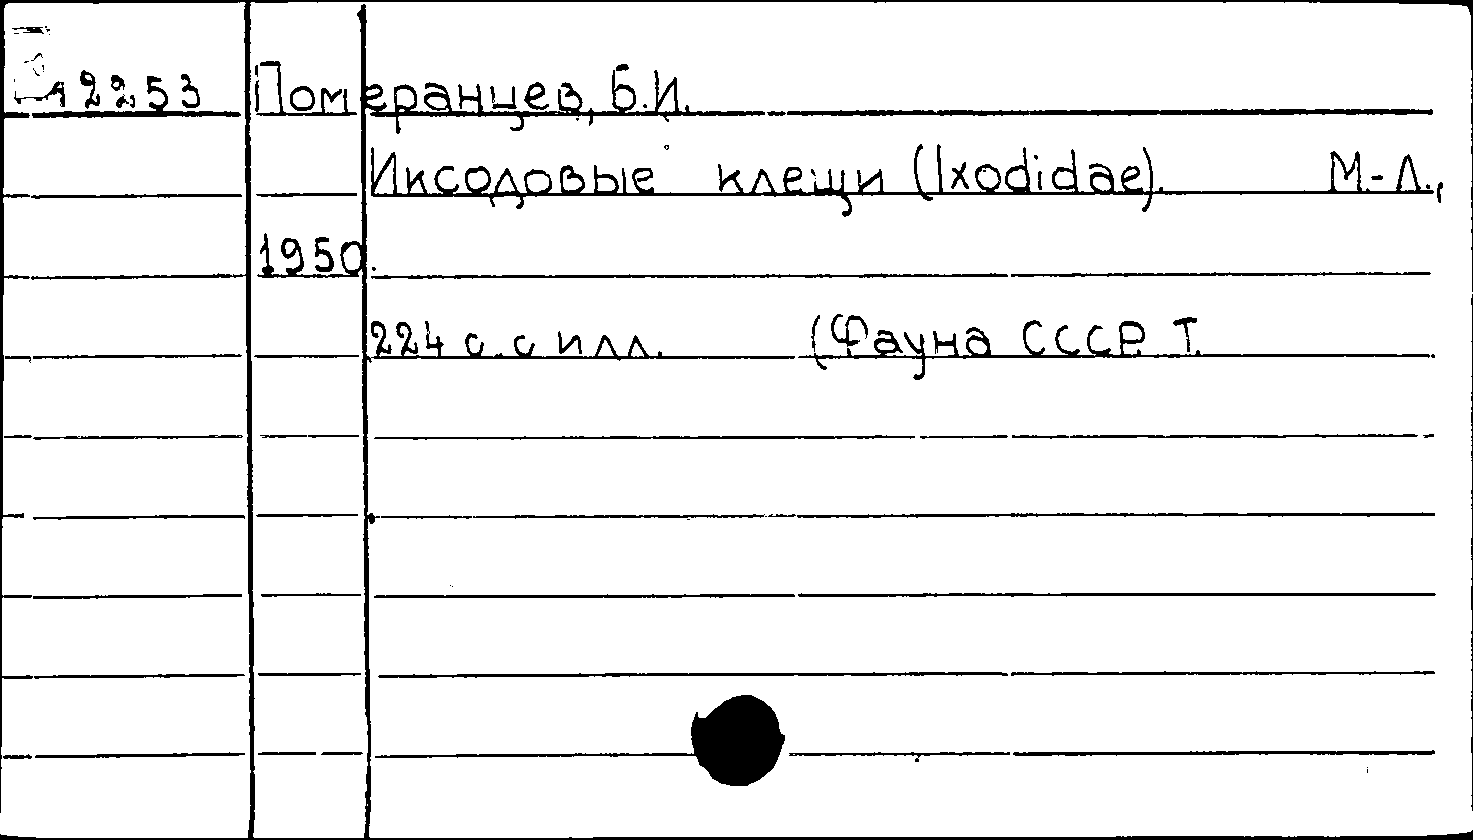 12253 Померанцев, Б.И.
Иксодовые клещи (Ixodidae). М.-Л.,
1950.
224 с. с илл. (Фауна СССР. Т.